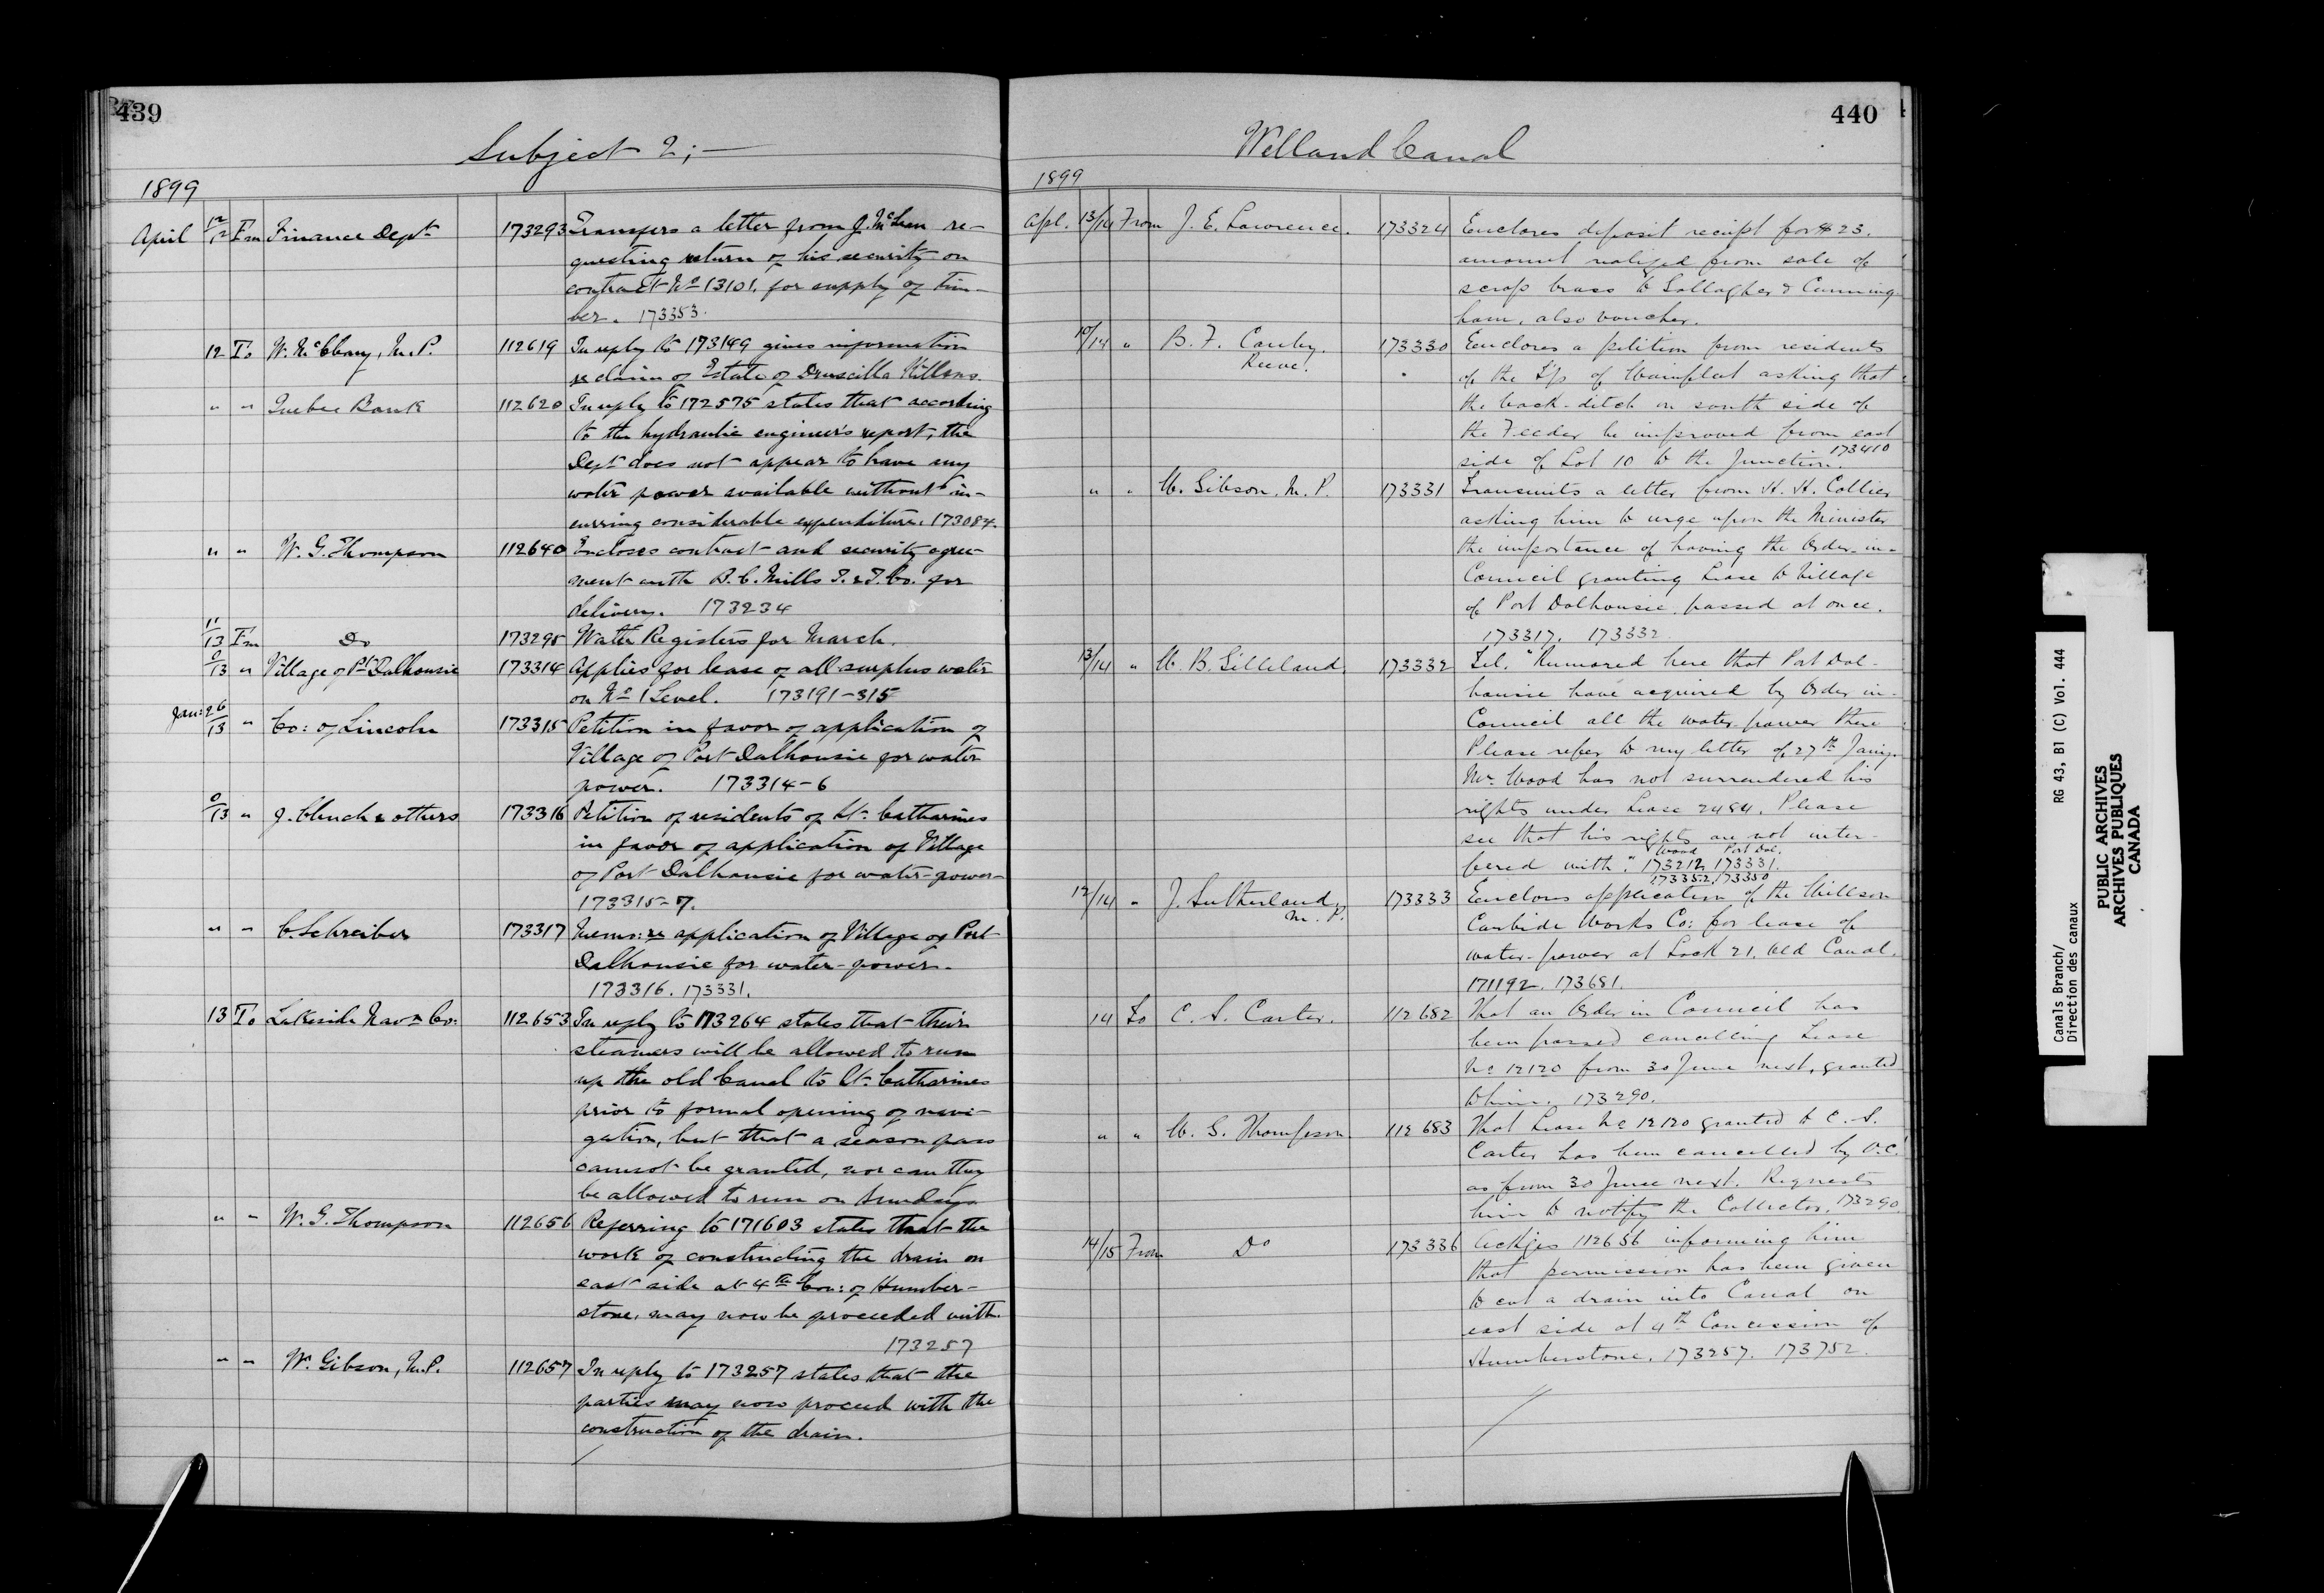 439
Subject 2;—
1899
April 12/12 Fm Finance Dept 173293 Transfers a letter from J. McLean re-
questing return of his security on
contract No 13101. for supply of tim-
ber. 173353.
12 To W. McCleary, M.P. 112619 In reply to 173149 gives information
re claim of Estate of Druscilla Killins.
" " Quebec Bank 112620 In reply to 172575 states that according
to the hydraulic engineer's report, the
Dept does not appear to have any
water power available without in-
curring considerable expenditure. 173084.
" " W. G. Thompson 112640 Encloses contract and security agree-
ment with B. C. Mills T. & T. Co. for
delivery. 173234
11/13 Fm Do 173295 Water Registers for March.
0/13 " Village of Pt Dalhousie 173314 Applies for lease of all surplus water
on No 1 Level. 173191-315
Jan: 26/13 " Co: of Lincoln 173315 Petition in favor of application of
Village of Port Dalhousie for water
power. 173314-6
0/13 " J. Clench & others 173316 Petition of residents of St. Catharines
in favor of application of Village
of Port Dalhousie for water-power-
173315-7.
" " C. Schreiber 173317 Memo: re application of Village of Port
Dalhousie for water-power.
173316. 173331.
13 To Lakeside Navn Co: 112653 In reply to 173264 states that their
steamers will be allowed to run
up the old Canal to St. Catharines
prior to formal opening of navi-
gation, but that a season pass
cannot be granted, nor can they
be allowed to run on Sundays
" " W. G. Thompson 112656 Referring to 171603 states that the
work of constructing the drain on
east side at 4th Con: of Humber-
stone, may now be proceeded with.
173257
" " W. Gibson, M.P. 112657 In reply to 173257 states that the
parties may now proceed with the
construction of the drain.
440
Welland Canal
1899
Apl. 13/14 From J. E. Lawrence. 173324 Encloses deposit receipt for $23.
amount realized from sale of
scrap brass to Gallagher & Cunning-
ham, also voucher.
10/14 " B. F. Canby. 173330 Encloses a petition from residents
Reeve.
of the T/p of Wainfleet asking that
the back-ditch on south side of
the Feeder be improved from east
side of Lot 10 to the Junction. 173410
" " W. Gibson, M.P. 173331 Transmits a letter from H. H. Collier
asking him to urge upon the Minister
the importance of having the Order-in-
Council granting Lease to Village
of Port Dalhousie passed at once.
173317. 173332
13/14 " W. B. Gilleland. 173332 Tel. "Rumored here that Port Dal-
housie have acquired by Order in-
Council all the water-power there
Please refer to my letter of 27th Jany.
Mr. Wood has not surrendered his
rights under Lease 2484. Please
see that his rights are not inter-
Wood Port Dal.
fered with". 173212, 173331.
173352, 173350
12/14 " J. Sutherland, 173333 Encloses application of the Willson
M.P.
Carbide Works Co: for lease of
water-power at Lock 21. Old Canal.
171192. 173681.
14 To C. S. Carter. 112682 That an Order in Council has
been passed cancelling Lease
No 12120 from 30 June next, granted
to him. 173290.
" " W. G. Thompson. 112683 That Lease No 12120 granted to C. S.
Carter has been cancelled by O.C.
as from 30 June next. Requests
him to notify the Collector. 173290
14/15 From Do 173336 Ackges 112656 informing him
that permission has been given
to cut a drain into Canal on
east side at 4th Concession of
Humberstone. 173257. 173752.
Canals Branch/
Direction des canaux
RG 43, B1 (C) Vol. 444
PUBLIC ARCHIVES
ARCHIVES PUBLIQUES
CANADA